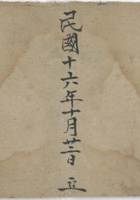 民國十六年十月廿三日 立